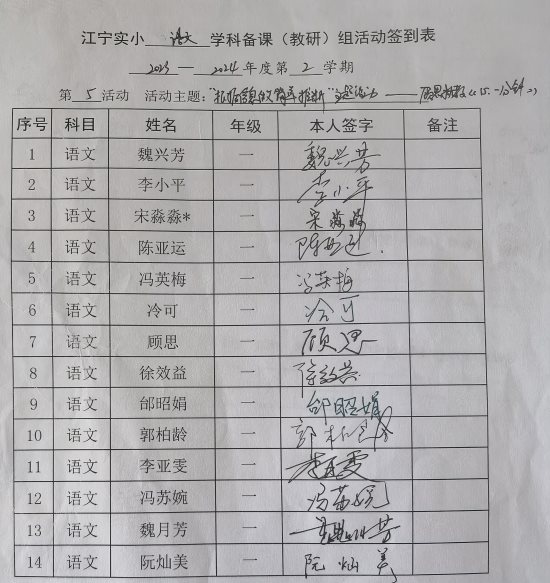 江宁实小 语文 学科备课（教研）组活动签到表
2023—2024年度第2学期
第 5 活动 活动主题：
序号 科目 姓名 年级 本人签字 备注
1 语文 魏兴芳 一 魏兴芳
2 语文 李小平 一 李小平
3 语文 宋淼淼* 一 宋淼淼
4 语文 陈亚运 一 陈亚运
5 语文 冯英梅 一 冯英梅
6 语文 冷可 一 冷可
7 语文 顾思 一 顾思
8 语文 徐效益 一 徐效益
9 语文 邰昭娟 一 邰昭娟
10 语文 郭柏龄 一 郭柏龄
11 语文 李亚雯 一 李亚雯
12 语文 冯苏婉 一 冯苏婉
13 语文 魏月芳 一 魏月芳
14 语文 阮灿美 一 阮灿美